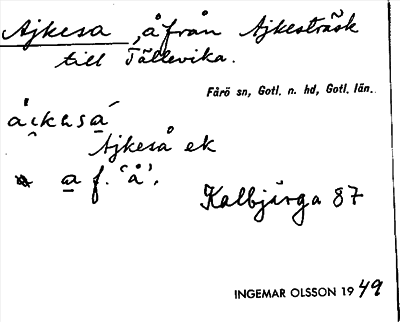 Ajkesa, å från Ajkesträsk
till Tällevika.
Fårö sn, Gotl. n. hd, Gotl. län.
Ajkeså ek
a f. 'å'.
Kalbjärga 87
INGEMAR OLSSON 1949